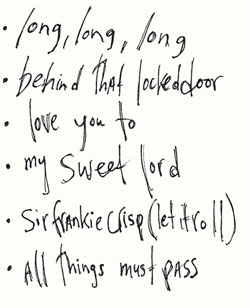 • long, long, long
• behind that lockeddoor
• love you to
• my sweet lord
• Sir frankie Crisp (let it roll)
• All things must pass